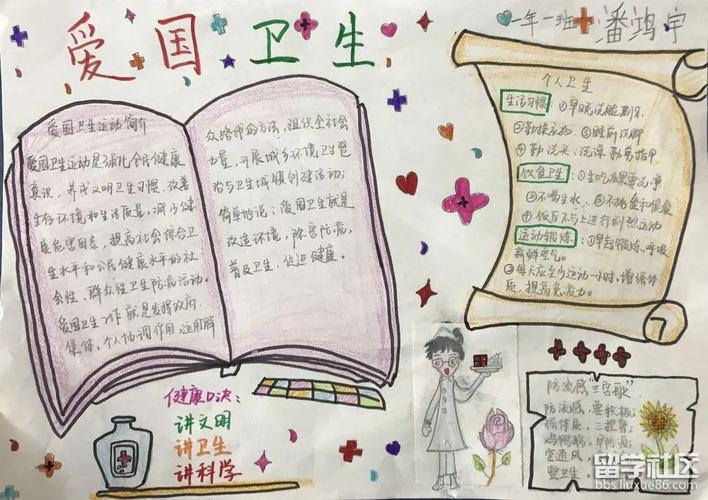 爱国卫生
一年一班 潘鸿宇
爱国卫生运动简介
爱国卫生运动是强化公民健康
意识、养成文明卫生习惯、改善
生存环境和生活质量,减少健
康危害因素,提高社会综合卫
生水平和公民健康水平的社
会性、群众性卫生防病活动。
爱国卫生工作就是发挥政府、
集体、个人协调作用,运用群
众路线的方法,组织全社会
力量,开展城乡环境卫生整
治与卫生城镇创建活动;
简单地说:爱国卫生就是
改造环境,除害防病,
普及卫生,促进健康。
个人卫生
生活习惯:①早晚洗脸刷牙
②勤换衣物 ③睡前洗脚
④勤洗头、洗澡 勤剪指甲
饮食卫生:①生吃瓜果要洗净
②不喝生水 ③不挑食和偏食
④饭后不马上进行剧烈运动
运动锻炼:①早起锻炼,呼吸
新鲜空气。
②每天应至少运动一小时,增强体
质,提高免疫力。
健康口决:
讲文明
讲卫生
讲科学
防流感"三字歌"
防流感,要积极;
室通风,
留学社区
bbs.liuxue86.com